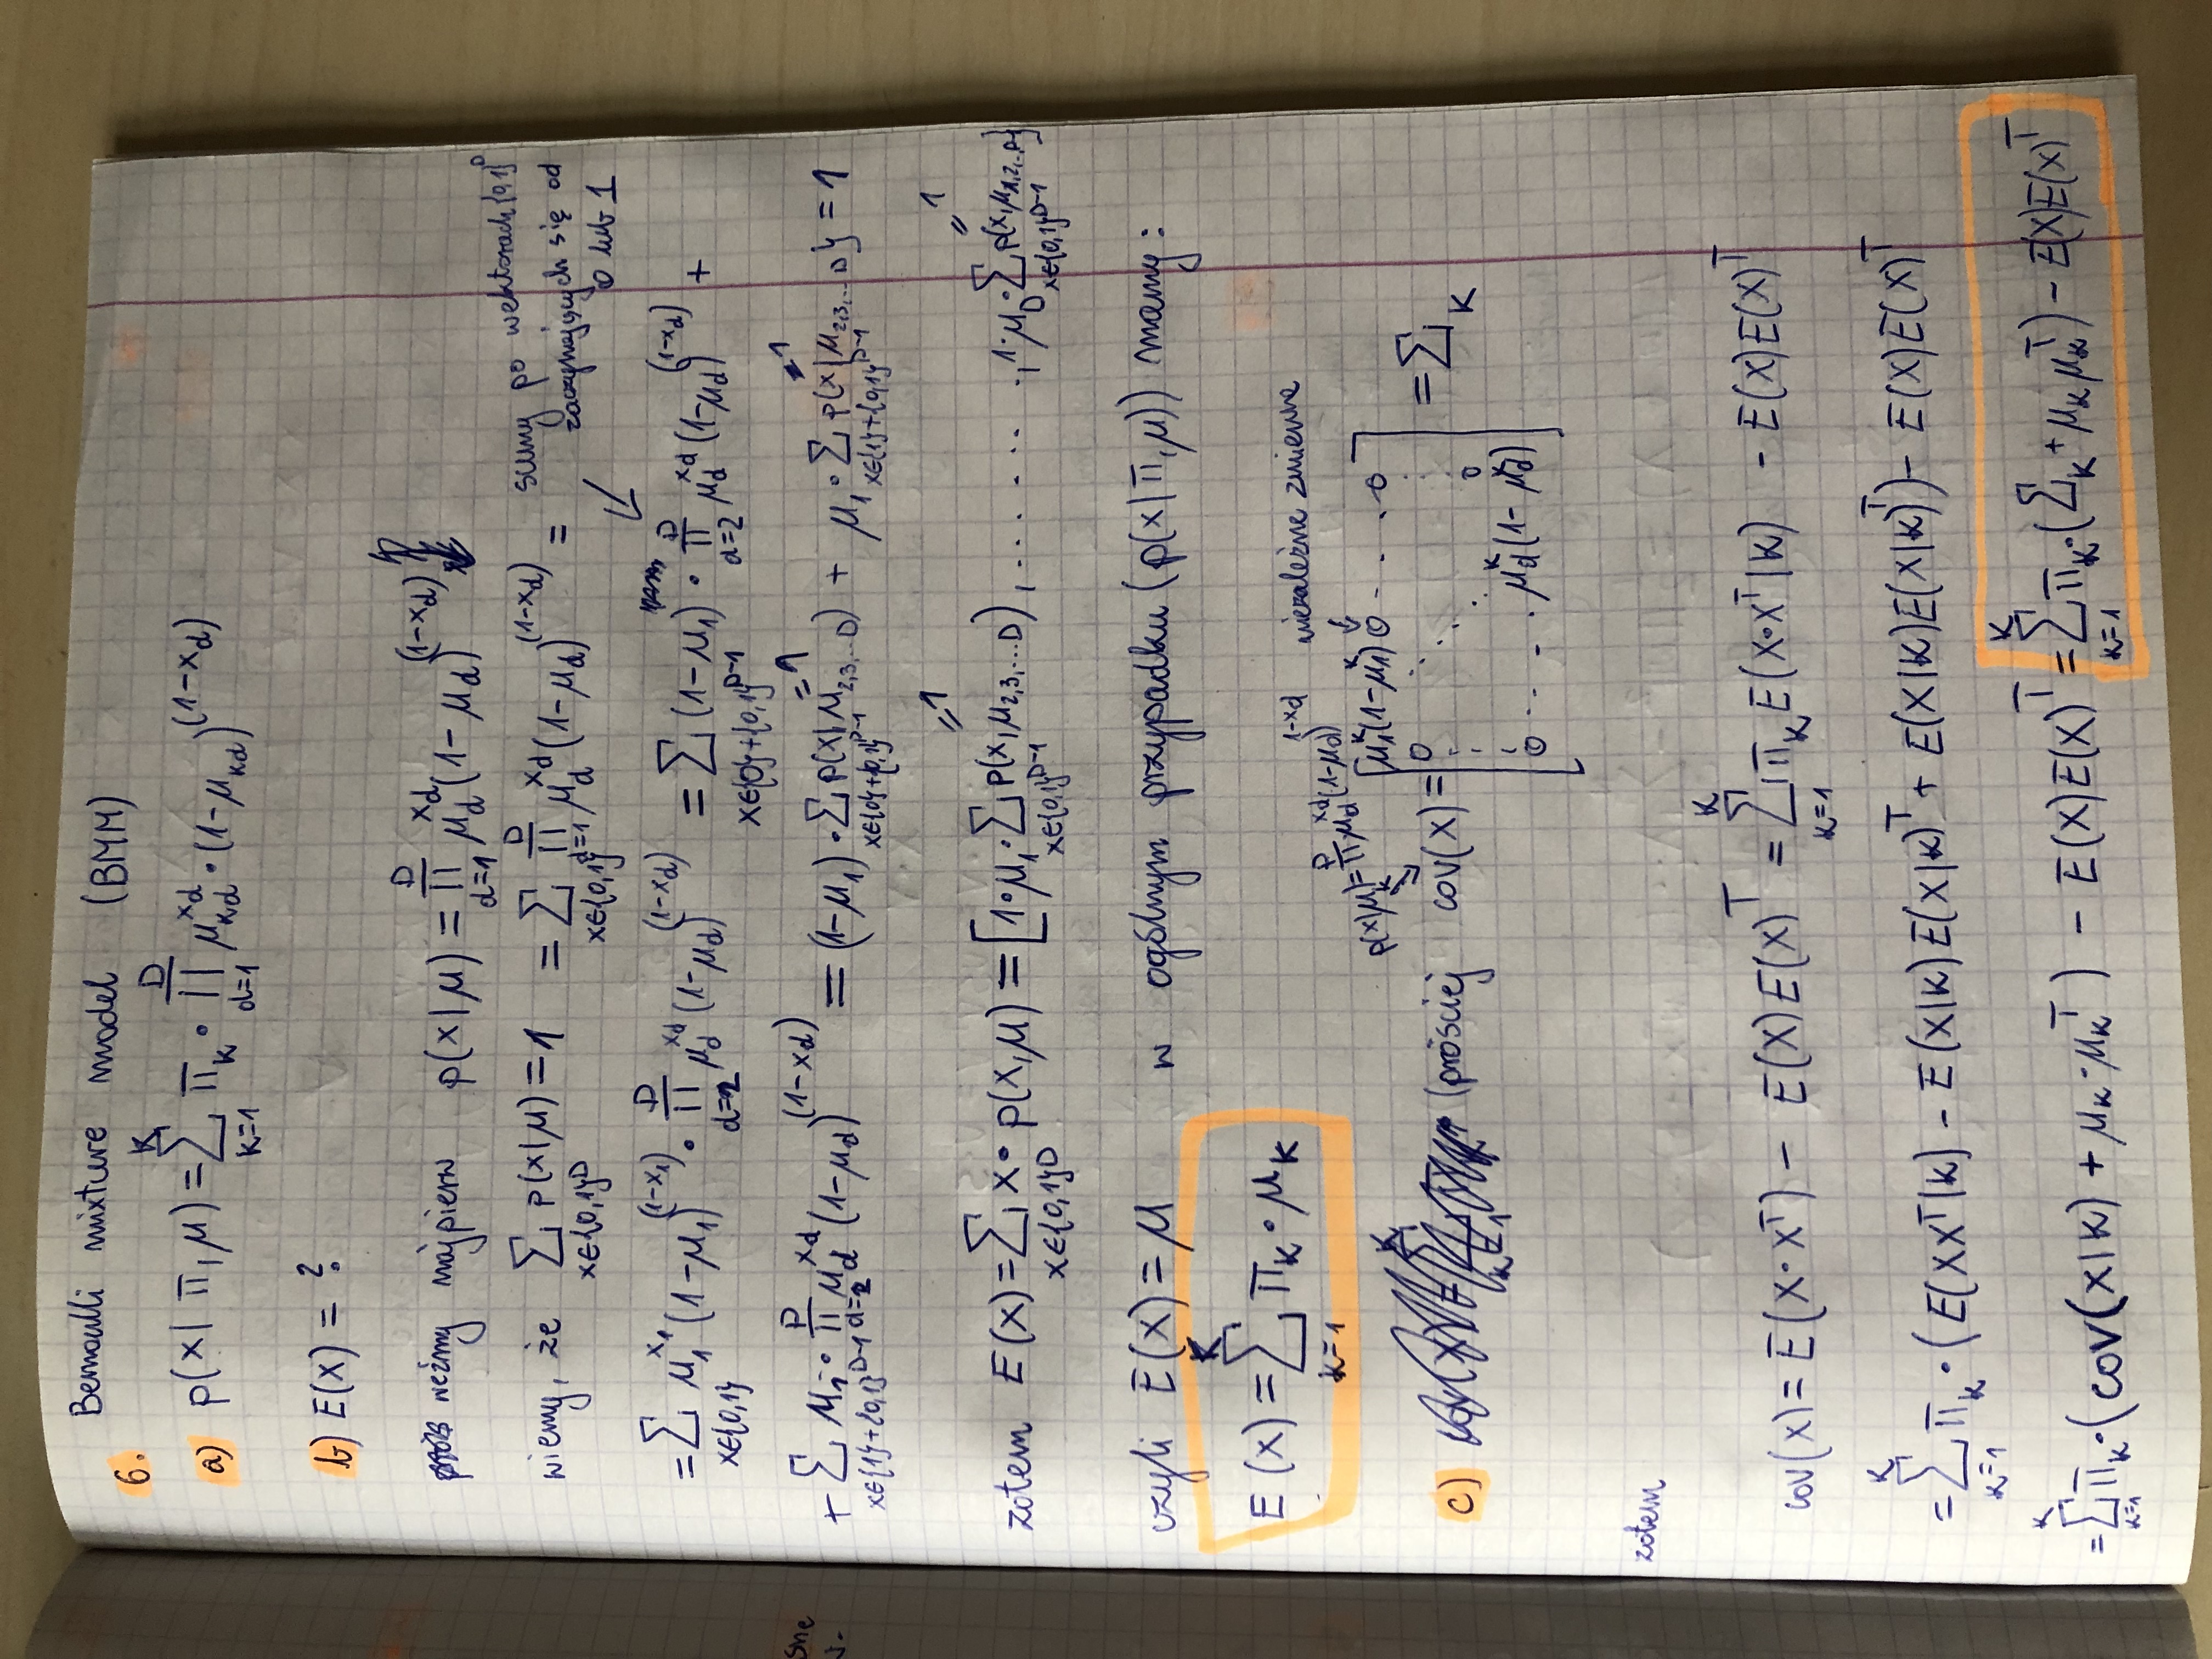 Bernoulli mixture model (BMM)
6.
a) p(x| π, μ) = ∑_{k=1}^{K} π_k · ∏_{d=1}^{D} μ_{kd}^{x_d} · (1-μ_{kd})^{(1-x_d)}
b) E(x) = ?
weźmy najpierw p(x|μ) = ∏_{d=1}^{D} μ_d^{x_d} (1-μ_d)^{(1-x_d)}
wiemy, że ∑_{x∈{0,1}^D} p(x|μ) = 1 = ∑_{x∈{0,1}} ∏_{d=1}^{D} μ_d^{x_d} (1-μ_d)^{(1-x_d)} =
sumy po wektorach {0,1}^D
zaczynających się od
0 lub 1
↙
= ∑_{x∈{0,1}} μ_1^{x_1} (1-μ_1)^{(1-x_1)} · ∏_{d=2}^{D} μ_d^{x_d} (1-μ_d)^{(1-x_d)} = ∑_{x∈{0}+{0,1}^{D-1}} (1-μ_1) · ∏_{d=2}^{D} μ_d^{x_d} (1-μ_d)^{(1-x_d)} +
+ ∑_{x∈{1}+{0,1}^{D-1}} μ_1 · ∏_{d=2}^{D} μ_d^{x_d} (1-μ_d)^{(1-x_d)} = (1-μ_1) · ∑_{x∈{0}+{0,1}^{D-1}} p(x|μ_{2,3,...D}) =1 + μ_1 · ∑_{x∈{1}+{0,1}^{D-1}} p(x|μ_{2,3,...D}} =1 = 1
zatem E(x) = ∑_{x∈{0,1}^D} x · p(x,μ) = [1·μ_1 · ∑_{x∈{0,1}^{D-1}} p(x,μ_{2,3,...D}) =1 , ........, 1·μ_D · ∑_{x∈{0,1}^{D-1}} p(x,μ_{1,2,..D}) =1]
czyli E(x) = μ w ogólnym przypadku (p(x|π,μ)) mamy:
E(x) = ∑_{k=1}^{K} π_k · μ_k
niezależne zmienne
p(x|μ) = ∏ μ_d^{x_d} (1-μ_d)^{1-x_d}
c) (prościej cov(x) = [μ_1^k (1-μ_1^k) 0 ... 0
0 ⋱ ⋮
⋮ 0
0 ..... μ_d^k (1-μ_d^k)] = ∑_k
zatem
cov(x) = E(x·x^T) - E(x)E(x)^T = ∑_{k=1}^{K} π_k E(x·x^T|k) - E(x)E(x)^T
= ∑_{k=1}^{K} π_k · (E(xx^T|k) - E(x|k)E(x|k)^T + E(x|k)E(x|k)^T) - E(x)E(x)^T
= ∑_{k=1}^{K} π_k · (cov(x|k) + μ_k · μ_k^T) - E(x)E(x)^T = ∑_{k=1}^{K} π_k · (∑_k + μ_k μ_k^T) - E(x)E(x)^T